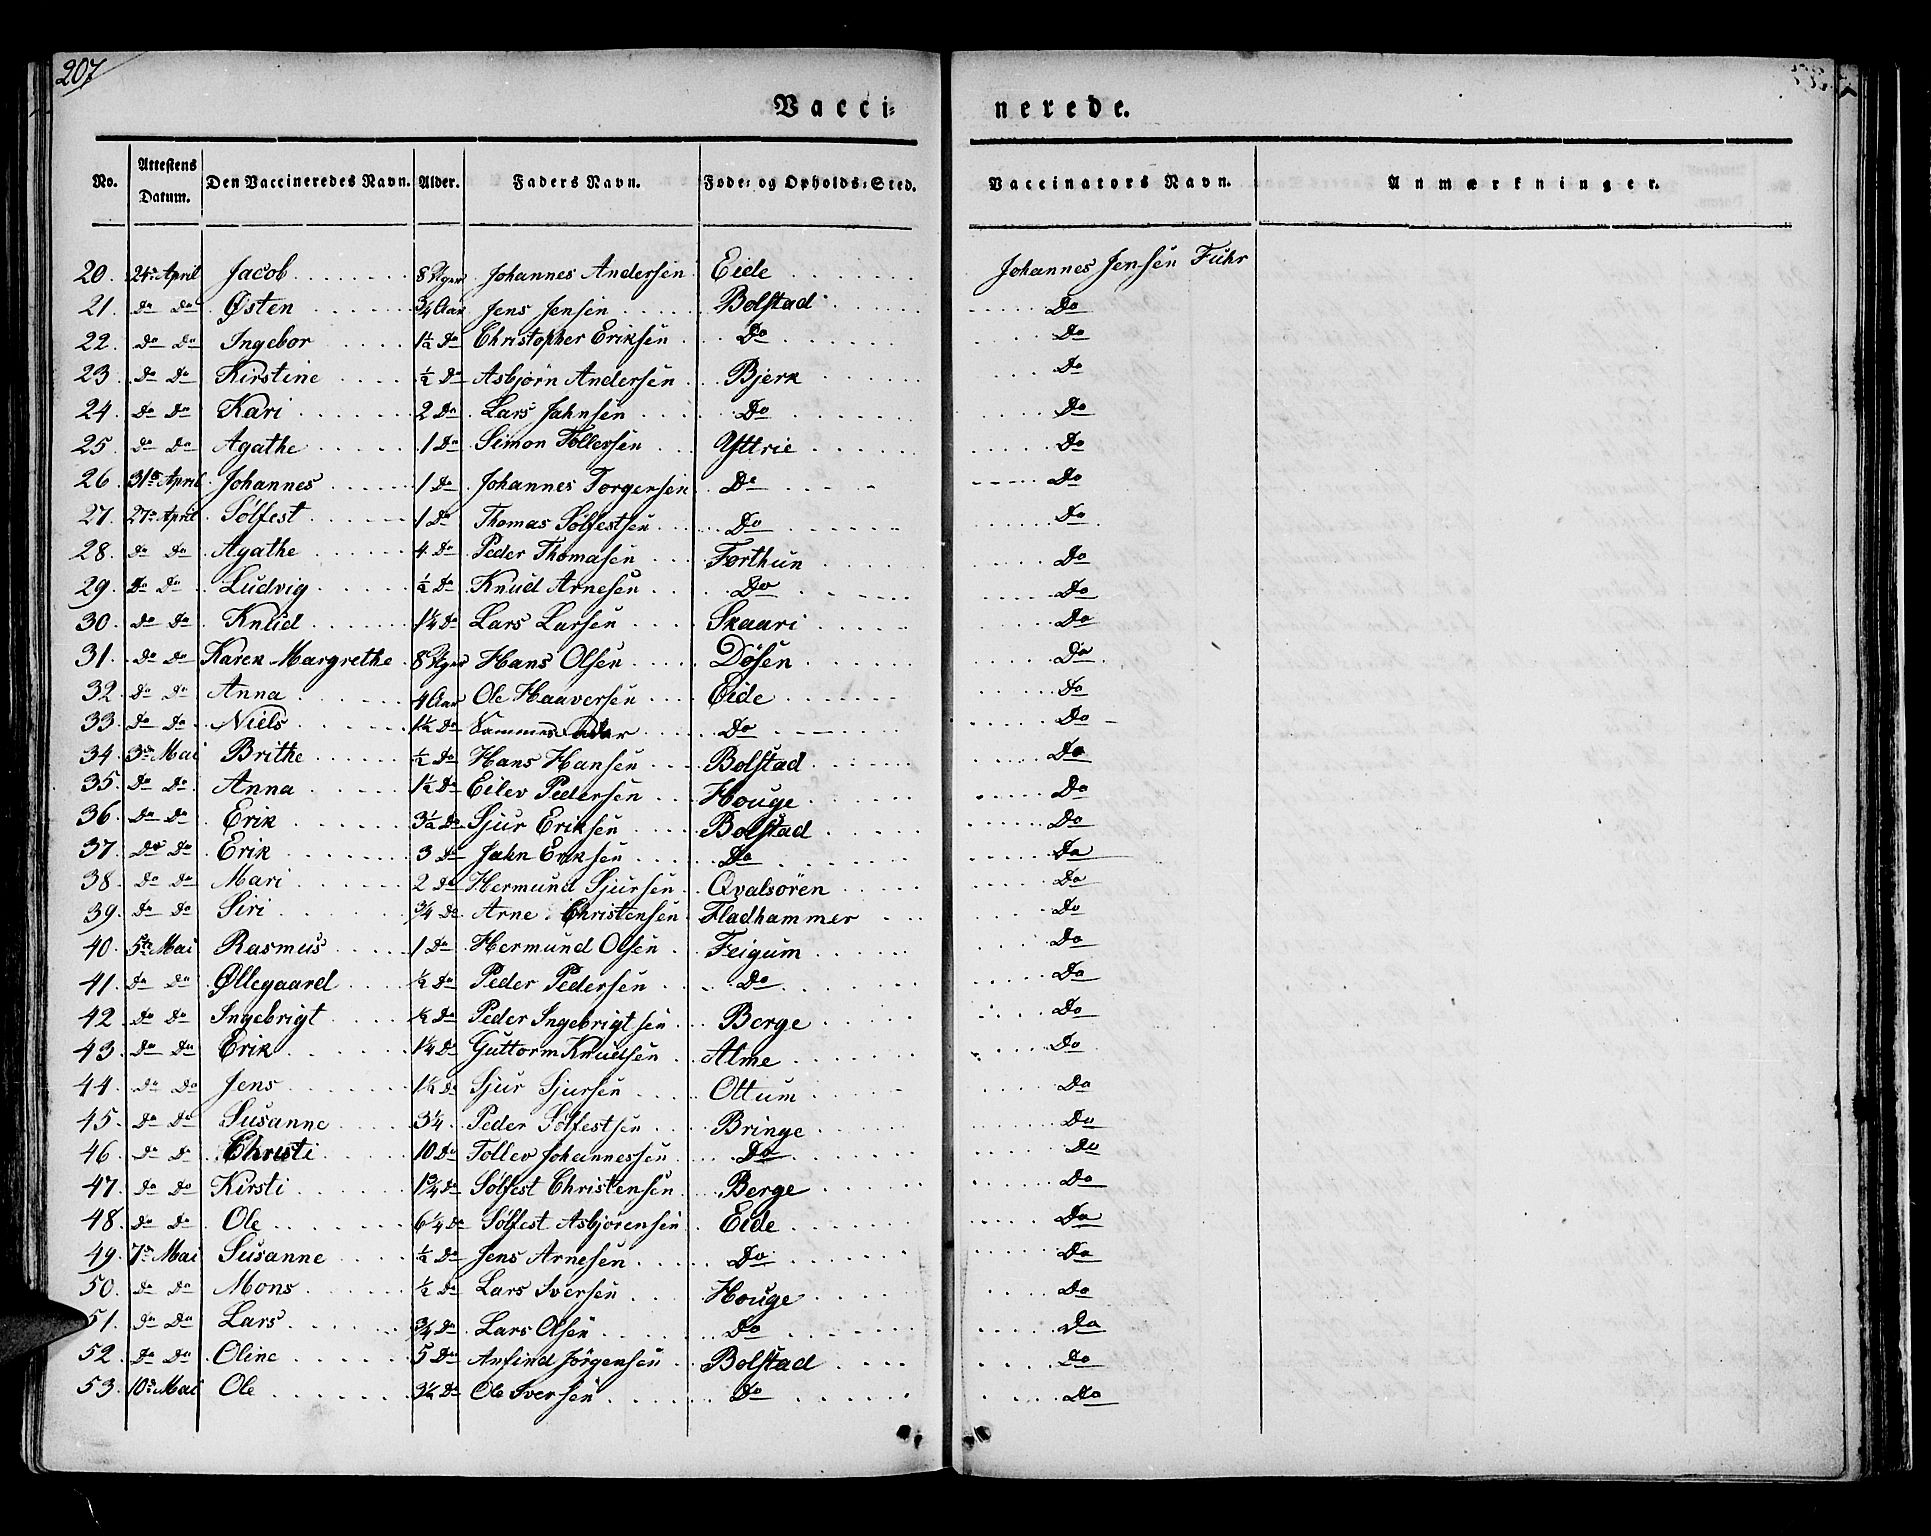 207
Vacci= nerede.
No. Attestens Datum. Den Vaccineredes Navn. Alder. Faders Navn. Føde= og Opholds=Sted. Vaccinators Navn. Anmærkninger.
20. 24de April Jacob 8 Uger Johannes Andersen Eide Johannes Jensen Fuhr
21. Do Do Østen 3/4 Aar Jens Jensen Bolstad Do
22. Do Do Ingebor 1 1/2 Do Christopher Eriksen Do Do
23. Do Do Kirstine 1/2 Do Asbjörn Andersen Bjerk Do
24. Do Do Kari 2 Do Lars Jahnsen Do Do
25. Do Do Agathe 1 Do Simon Tollersen Yttrie Do
26. 31te April Johannes 1 Do Johannes Torgersen Do Do
27. 27de April Sölfest 1 Do Thomas Sölfestsen Do Do
28. Do Do Agathe 4 Do Peder Thomasen Forthun Do
29. Do Do Ludvig 1/2 Do Knud Arnesen Do Do
30. Do Do Knud 1 1/4 Do Lars Larsen Skaari Do
31. Do Do Karen Margrethe 8 Uger Hans Olsen Dösen Do
32. Do Do Anna 4 Aar Ole Haaversen Eide Do
33. Do Do Niels 1 1/2 Do Sammes Do Do
34. 3de Mai Brithe 1/2 Do Hans Hansen Bolstad Do
35. Do Do Anna 1 1/2 Do Eilev Pedersen Houge Do
36. Do Do Erik 3 1/2 Do Sjur Eriksen Bolstad Do
37. Do Do Erik 3 Do Jahn Eriksen Do Do
38. Do Do Mari 2 Do Hermund Sjursen Qvalsören Do
39. Do Do Siri 3/4 Do Arne Christensen Fladhammer Do
40. 5te Mai Rasmus 1 Do Hermund Olsen Feigum Do
41. Do Do Øllegaard 1/2 Do Peder Pedersen Do Do
42. Do Do Ingebrigt 1/2 Do Peder Ingebrigtsen Berge Do
43. Do Do Erik 1 1/4 Do Guttorm Knudsen Alme Do
44. Do Do Jens 1 1/2 Do Sjur Sjursen Ottum Do
45. Do Do Susanne 3 1/4 Peder Sölfestsen Bringe Do
46. Do Do Christi 10 Do Tollev Johannessen Do Do
47. Do Do Kirsti 1 3/4 Do Sölfest Christensen Berge Do
48. Do Do Ole 6 1/4 Do Sölfest Asbjörensen Eide Do
49. 7de Mai Susanne 1/2 Do Jens Arnesen Do Do
50. Do Do Mons 1/2 Do Lars Iversen Houge Do
51. Do Do Lars 3/4 Do Lars Olsen Do Do
52. Do Do Oline 5 Do Anfind Jörgensen Bolstad Do
53. 10de Mai Ole 3 1/2 Do Ole Iversen Do Do